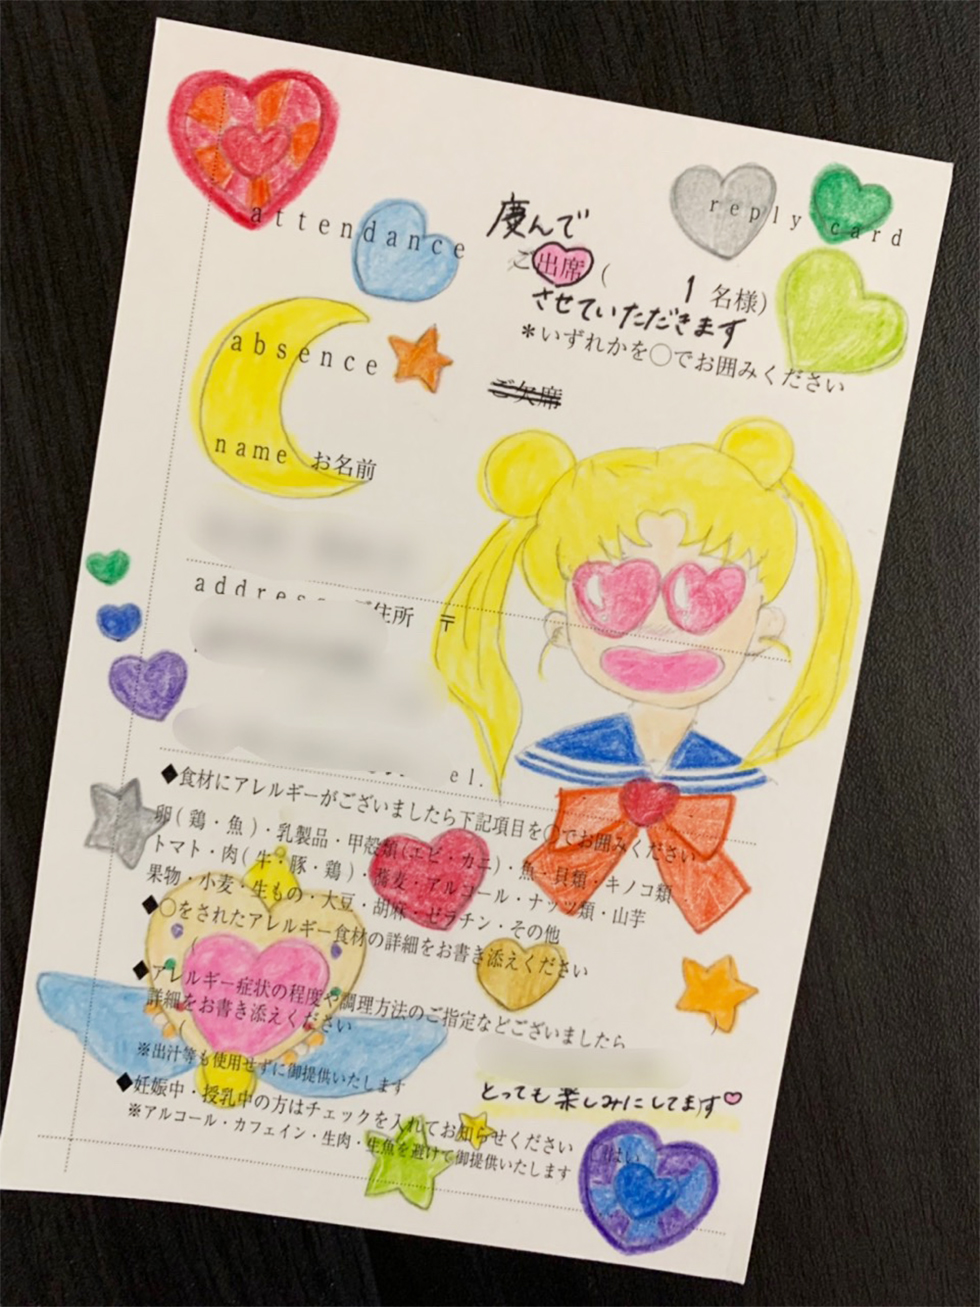 reply card
attendance
慶んで
ご出席( 1 名様)
させていただきます
*いずれかを○でお囲みください
absence
ご欠席
name お名前
address ご住所 〒
el.
◆食材にアレルギーがございましたら下記項目を○でお囲みください
卵(鶏・魚)・乳製品・甲殻類(エビ・カニ)・魚・貝類・キノコ類
トマト・肉(牛・豚・鶏)・蕎麦・アルコール・ナッツ類・山芋
果物・小麦・生もの・大豆・胡麻・ゼラチン・その他
◆○をされたアレルギー食材の詳細をお書き添えください
◆アレルギー症状の程度や調理方法のご指定などございましたら
詳細をお書き添えください
※出汁等も使用せずに御提供いたします
とっても楽しみにしてます♡
◆妊娠中・授乳中の方はチェックを入れてお知らせください
※アルコール・カフェイン・生肉・生魚を避けて御提供いたします
はい